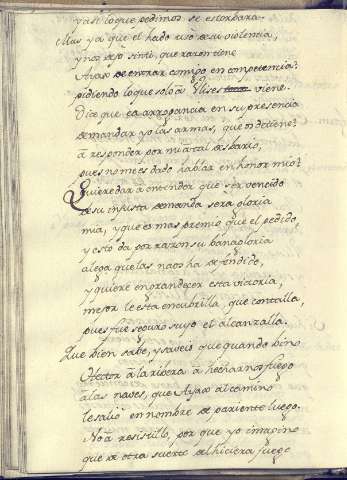 y assi lo que pedimos se estorbara.
Mas ya que el hado usó de su violencia,
y nos dejó sin ti, que razon tiene
Aiax de entrar comigo en competencia?
pidiendo lo que solo à Ulises viene.
Dice que es arrogancia en su presencia
demandar yo las armas, que os detiene?
à responder por mi a tal desbario,
pues no me es dado hablar en honor mio?
Quiere dar à entender que ser vencido
de su injusta demanda sera gloria
mia, y que es mas premio que el pedido,
y esto da por razon su banagloria
alega que las naos ha defendido,
y quiere engrandecer esta victoria,
mejor le està encubrilla, que contalla,
pues fue seguro suyo el alcanzalla.
Que bien sabe, y sabeis que quando bino
Hector à la ribera à hecharnos fuego
à las naves, que Aiax al camino
le salio en nombre de pariente luego.
No à resistillo, por que yo imagino
que de otra suerte el hiciera fuego